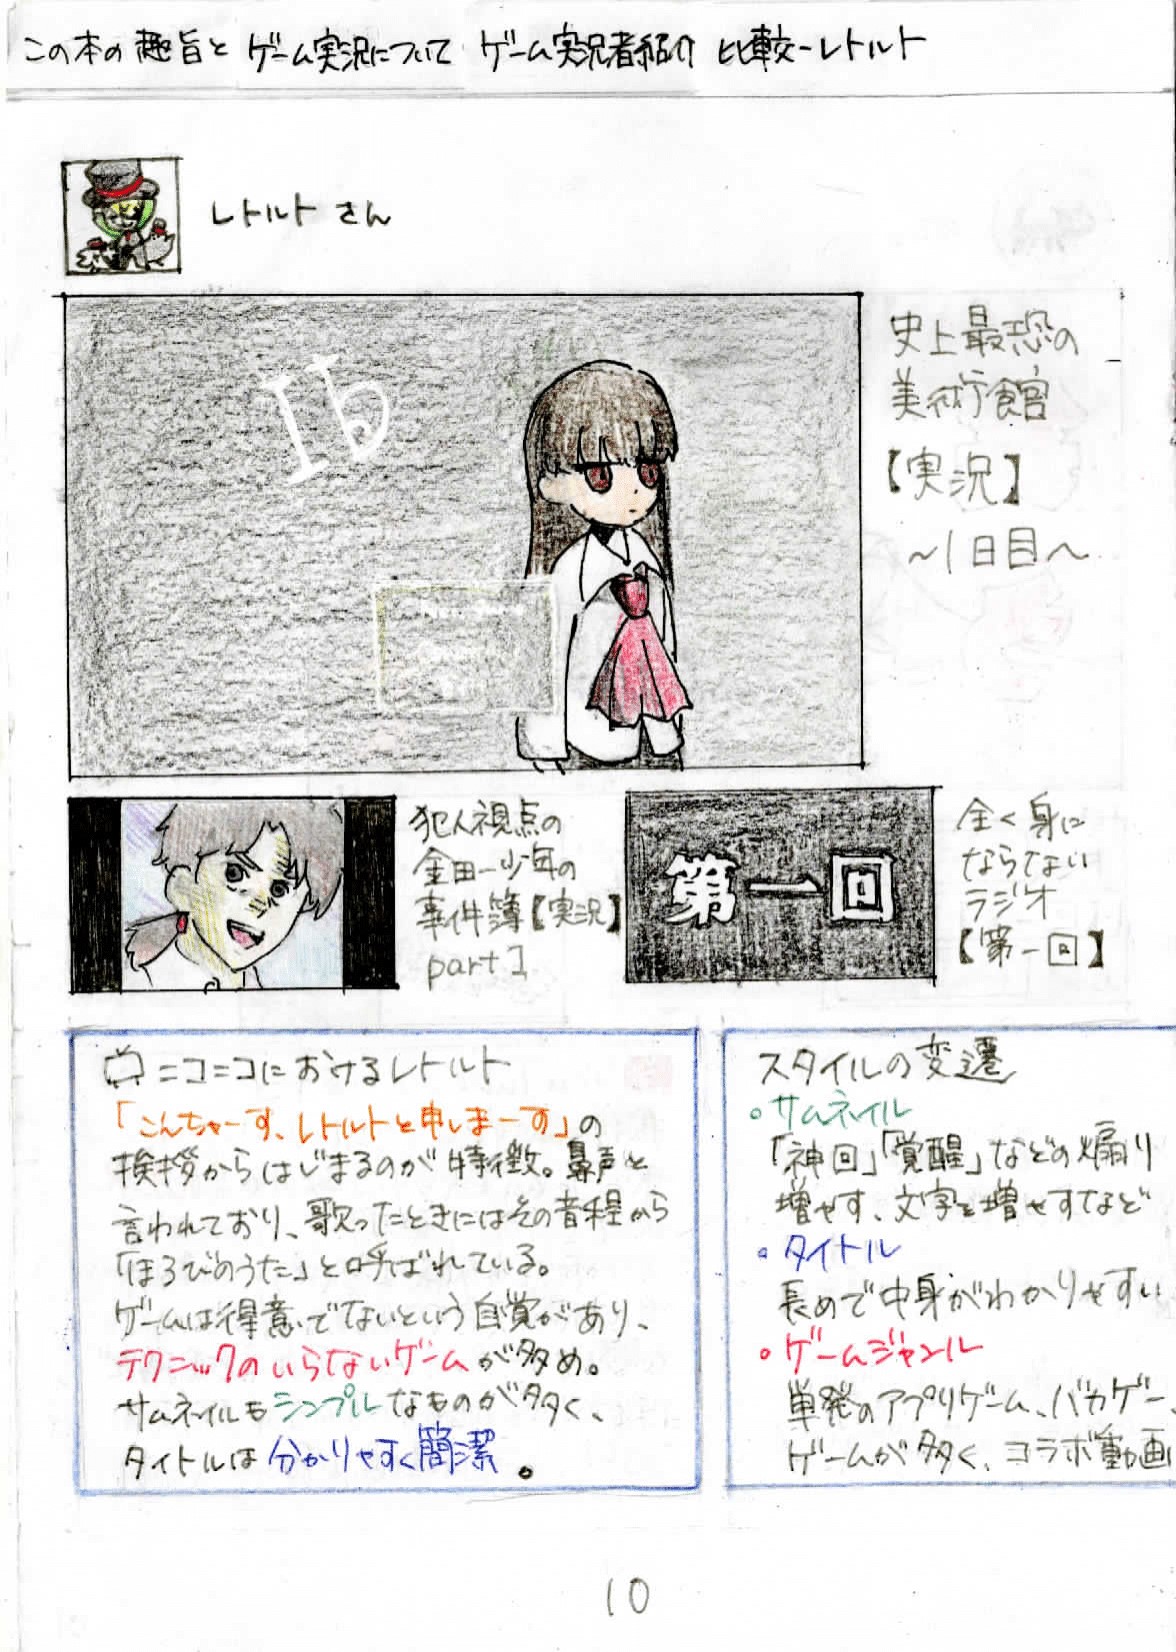 この本の趣旨と ゲーム実況について ゲーム実況者紹介 比較-レトルト
レトルト さん
Ib
史上最恐の
美術館
【実況】
～1日目～
犯人視点の
金田一少年の
事件簿【実況】
part1
第一回
全く身に
ならない
ラジオ
【第一回】
ニコニコにおけるレトルト
「こんちゃーす、レトルトと申しまーす」の
挨拶からはじまるのが特徴。鼻声と
言われており、歌ったときにはその音程から
「ほろびのうた」と呼ばれている。
ゲームは得意でないという自覚があり、
テクニックのいらないゲームが多め。
サムネイルもシンプルなものが多く、
タイトルは分かりやすく簡潔。
スタイルの変遷
・サムネイル
「神回」「覚醒」などの煽り
増やす、文字を増やすなど
・タイトル
長めで中身がわかりやすい
・ゲームジャンル
単発のアプリゲーム、バカゲー、
ゲームが多く、コラボ動画
10